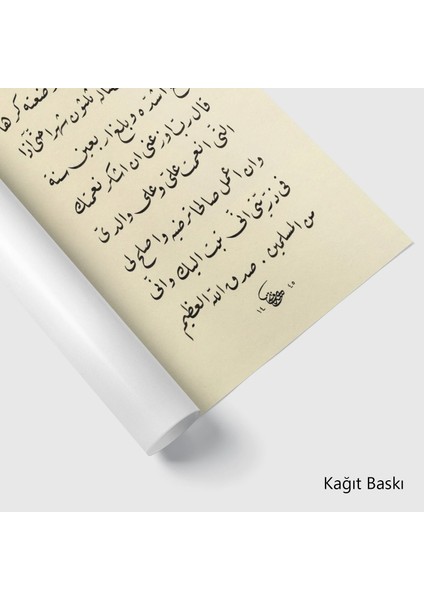 وضعته كرها
ثلثون شهرا حتى اذا
اشده وبلغ اربعين سنة
قال رب اوزعنى ان اشكر نعمتك
التى انعمت على وعلى والدى
وان اعمل صالحا ترضيه واصلح لى
فى ذريتى انى تبت اليك وانى
من المسلمين . صدق الله العظيم
١٤ ٤٥
Kağıt Baskı